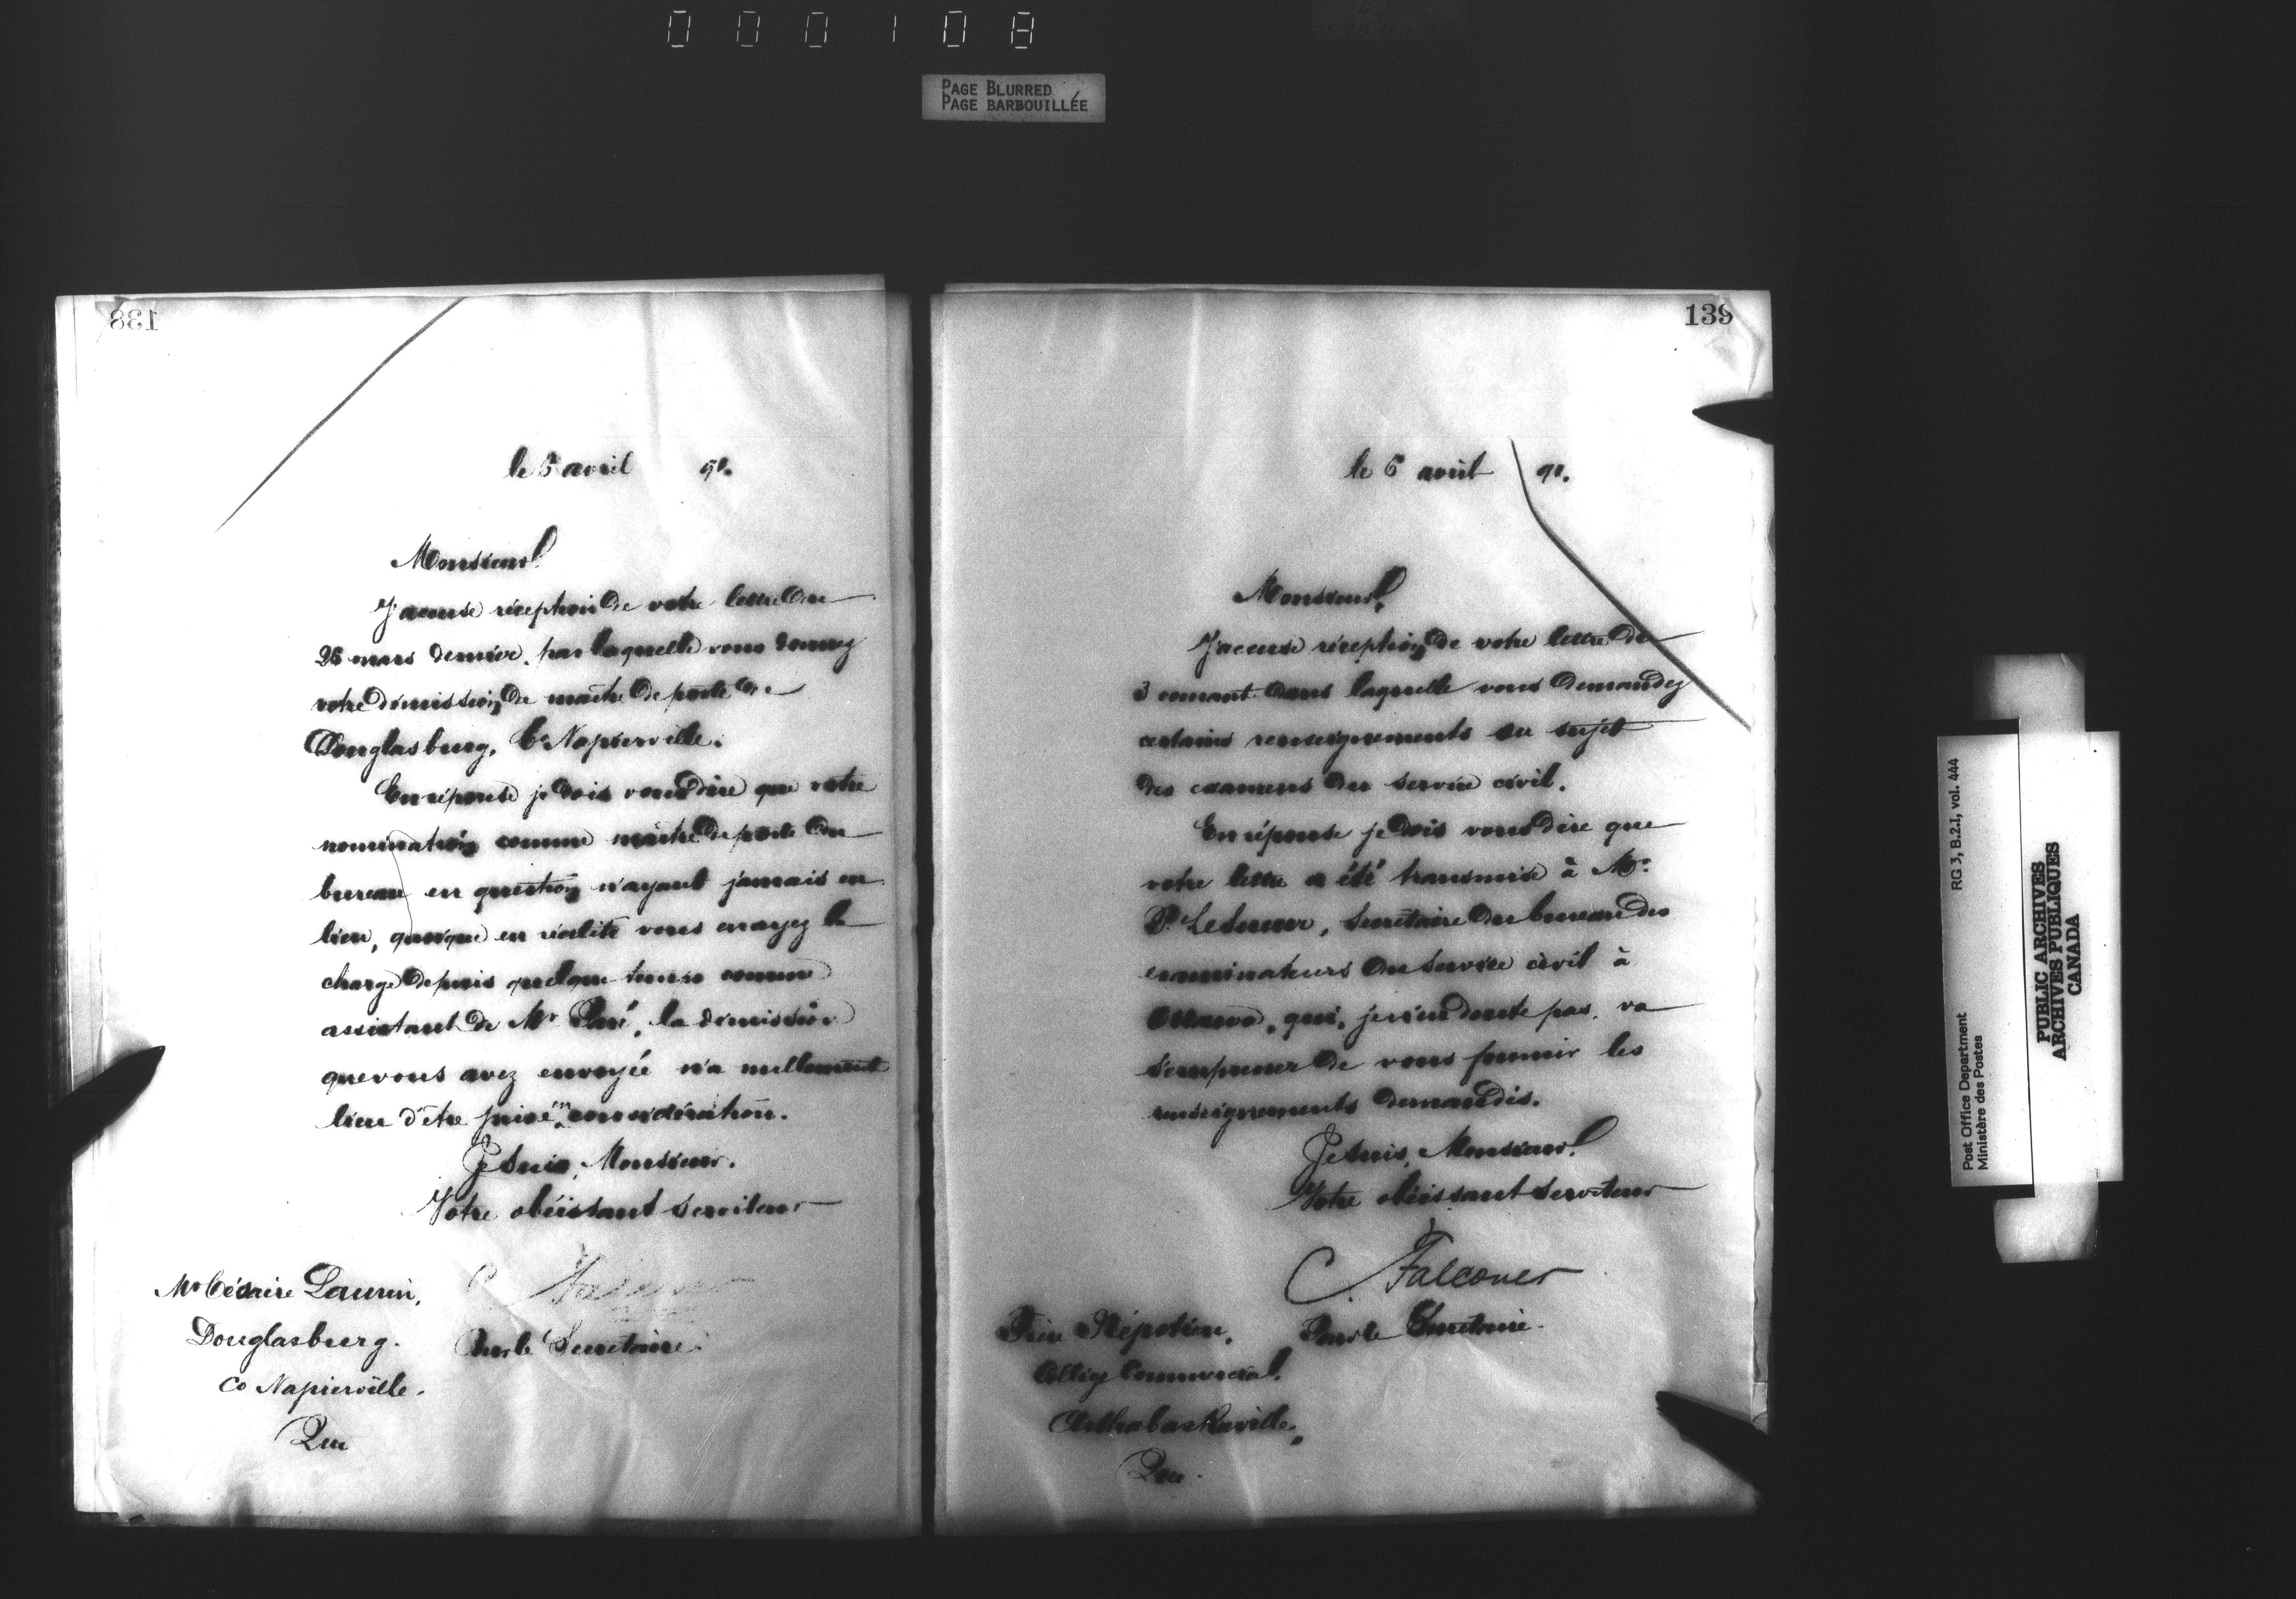 000108
PAGE BLURRED
PAGE BARBOUILLÉE
138
le 6 avril 91.
Monsieur,
J'accuse réception de votre lettre du
26 mars dernier, par laquelle vous donnez
votre démission de maître de poste de
Douglasburg, Co Napierville.
En réponse je dois vous dire que votre
nomination comme maître de poste du
bureau en question n'ayant jamais eu
lieu, quoique en réalité vous en ayez la
charge depuis quelque temps comme
assistant de Mr Paré, la démission
que vous avez envoyée n'a nullement
lieu d'être prise en considération.
Je suis, Monsieur,
Votre obéissant serviteur
C. Falconer
Pour le Secrétaire.
Mr Césaire Laurin,
Douglasburg.
Co Napierville.
Que
139
le 6 avril 91.
Monsieur,
J'accuse réception de votre lettre du
3 courant dans laquelle vous demandez
certains renseignements au sujet
des examens du service civil.
En réponse je dois vous dire que
votre lettre a été transmise à Mr.
P. LeSueur, Secrétaire du bureau des
examinateurs du service civil à
Ottawa, qui, je n'en doute pas, va
s'empresser de vous fournir les
renseignements demandés.
Je suis, Monsieur,
Votre obéissant serviteur
C. Falconer
Pour le Secrétaire.
Frère
Collège Commercial,
Arthabaskaville,
Que.
Post Office Department
Ministère des Postes
RG 3, B.2.I, vol. 444
PUBLIC ARCHIVES
ARCHIVES PUBLIQUES
CANADA